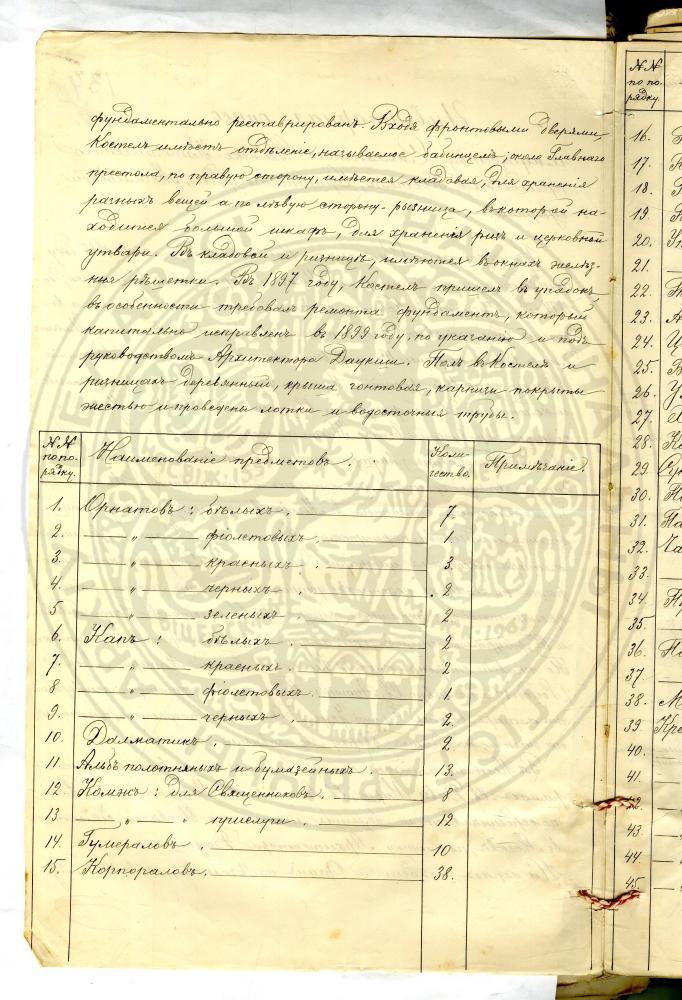 фундаментально реставрированъ. Входя фронтовыми дверями,
Костелъ имѣетъ отдѣленіе, называемое бабинцемъ; около Главнаго
престола, по правую сторону, имѣется кладовая, для храненія
разныхъ вещей а по лѣвую сторону - рызница, въ которой на-
ходится большой шкафъ, для храненія ризъ и церковной
утвари. Въ кладовой и ризницѣ, имѣются въ окнахъ желѣз-
ныя рѣшетки. Въ 1897 году, Костелъ пришелъ въ упадокъ,
въ особенности требовалъ ремонта фундаментъ, который
капитально исправленъ въ 1899 году, по указанію и подъ
руководствомъ Архитектора Даукши. Полъ въ Костелѣ и
ризницахъ деревянный, крыша гонтовая, карнизы покрыты
жестью и проведены лотки и водосточныя трубы.
№№ по по- рядку. Наименованіе предметовъ. Коли- чество. Примѣчаніе.
1. Орнатовъ: бѣлыхъ. 7.
2. „ фіолетовыхъ. 1.
3. „ красныхъ. 3.
4. „ черныхъ. 2
5 „ зеленыхъ. 2.
6. Капъ: бѣлыхъ. 2
7. „ красныхъ. 2
8 „ фіолетовыхъ. 1.
9. „ черныхъ. 2.
10. Далматикъ. 2
11. Альбъ полотняныхъ и бумазейныхъ. 13.
12. Комжъ: для Священниковъ. 8
13. „ „ прислуги. 12
14. Гумераловъ. 10
15. Корпораловъ. 38.
№№ по по- рядку.
16.
17.
18.
19.
20.
21.
22.
23.
24.
25.
26.
27.
28.
29.
30.
31.
32.
33.
34.
35.
36.
37.
38.
39.
40.
41.
42.
43.
44.
45.